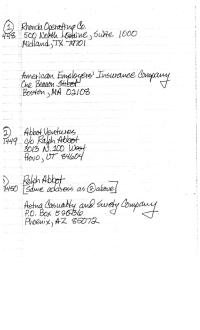 ① Rhonda Operating Co.
7448 500 North Loraine, Suite 1000
Midland, TX 79701
American Employers' Insurance Company
One Beacon Street
Boston, MA 02108
② Abbot Ventures
7449 c/o Ralph Abbot
3013 N. 100 West
Provo, UT 84604
Ralph Abbot
7450 [same address as ② above]
Aetna Casualty and Surety Company
P.O. Box
Phoenix, AZ 85072